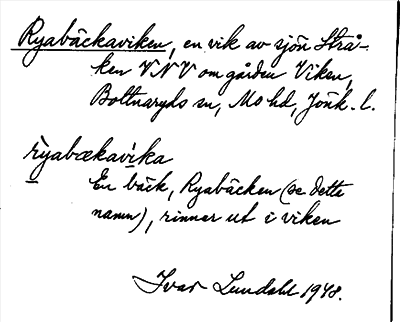 Ryabäckaviken, en vik av sjön Strå-
ken VNV om gården Viken,
Bottnaryds sn, Mo hd, Jönk. l.
ryabækavika
En bäck, Ryabäcken (se detta
namn), rinner ut i viken
Ivar Lundahl 1948.